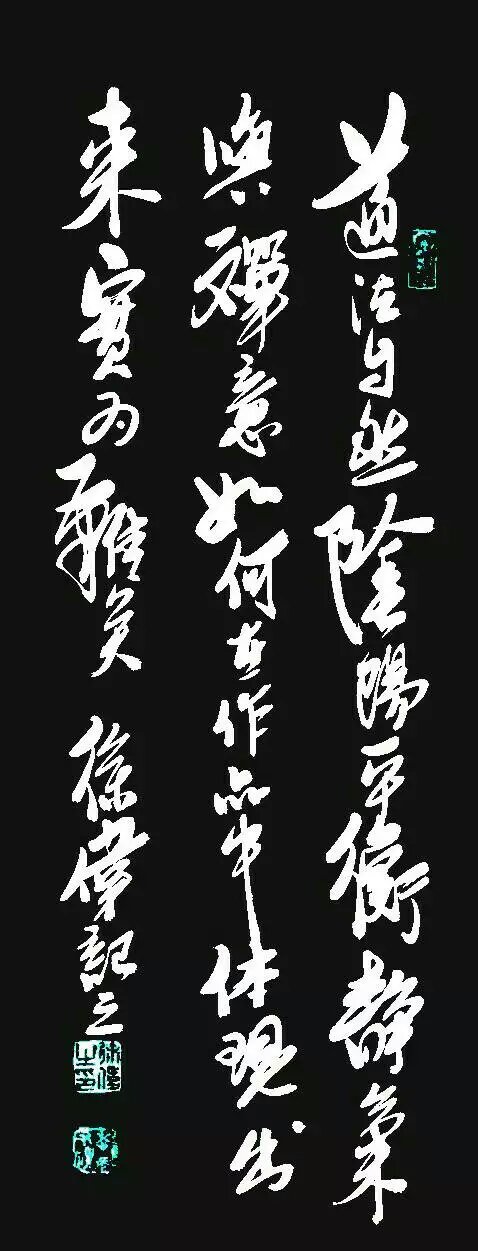 道法自然陰陽平衡静氣
與禪意如何在作品中体現出
来實为難矣 徐偉記之